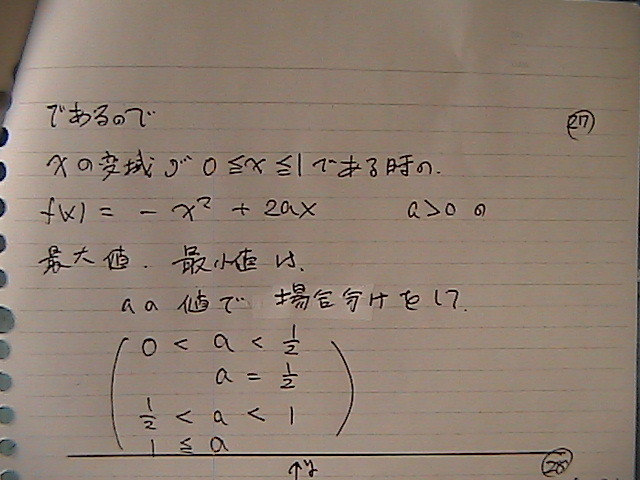 であるので
㉗
xの変域が 0≦x≦1である時の.
f(x) = - x² + 2ax a>0 の
最大値. 最小値は、
aの値で 場合分けをして.
0 < a < 1/2
a = 1/2
1/2 < a < 1
1 ≦ a
↑y